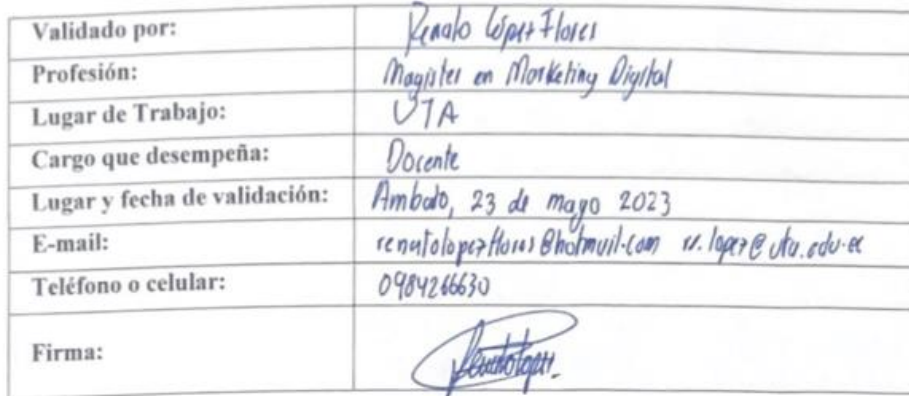 Validado por: Renato López Flores
Profesión: Magister en Marketing Digital
Lugar de Trabajo: UTA
Cargo que desempeña: Docente
Lugar y fecha de validación: Ambato, 23 de mayo 2023
E-mail: renatolopezflores@hotmail.com rv.lopez@uta.edu.ec
Teléfono o celular: 0984266630
Firma: Renatolopez